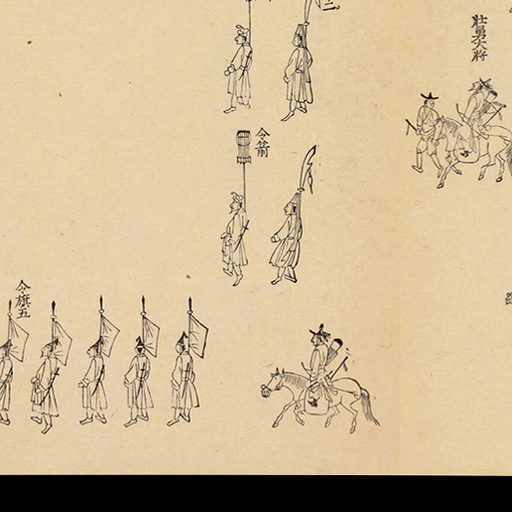 壯勇大將
二
令箭
令旗五